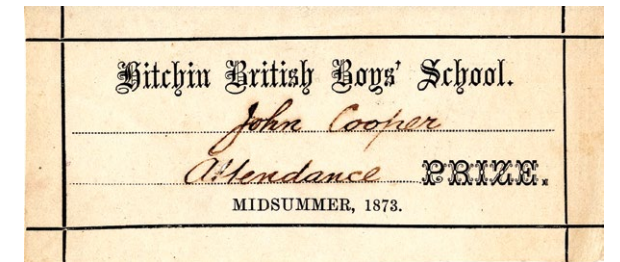 Hitchin British Boys' School.
John Cooper
Attendance PRIZE.
MIDSUMMER, 1873.